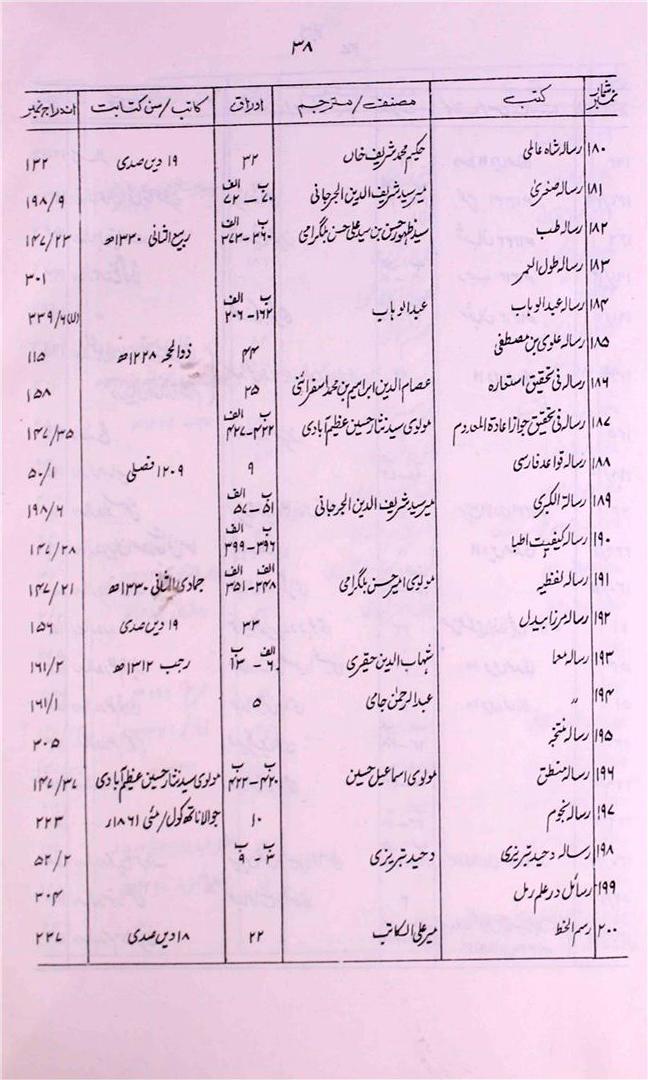 ۳۸
نمبر شمار | کتب | مصنف / مترجم | اوراق | کاتب / سن کتابت | اندراج نمبر
۱۸۰ | رسالہ شاہ عالمی | حکیم محمد شریف خاں | ۳۲ | ۱۹ ویں صدی | ۱۳۲
۱۸۱ | رسالہ صغریٰ | میر سید شریف الدین الجرجانی | ۷۰ب – ۷۲الف | | ۱۹۸/۹
۱۸۲ | رسالہ طب | سید ظہور حسن بن سید علی حسن بلگرامی | ۳۶۰ب – ۳۷۳الف | ربیع الثانی ۱۳۳۰ھ | ۱۴۷/۲۳
۱۸۳ | رسالہ طول النہر | | | | ۳۰۱
۱۸۴ | رسالہ عبدالوہاب | عبدالوہاب | ۱۶۲ب – ۲۰۶الف | | ۳۳۹/۶(U)
۱۸۵ | رسالہ علوی بن مصطفیٰ | | ۴۴ | ذوالحجہ ۱۲۲۸ھ | ۱۱۵
۱۸۶ | رسالہ فی تحقیق استعارہ | عصام الدین ابراہیم بن محمد اسفرائنی | ۲۵ | | ۱۵۸
۱۸۷ | رسالہ فی تحقیق جواز اعادۃ المعدوم | مولوی سید نثار حسین عظیم آبادی | ۴۲۲ب – ۴۲۷الف | | ۱۴۷/۳۵
۱۸۸ | رسالہ قواعد فارسی | | ۹ | ۱۲۰۹ فصلی | ۵۰/۱
۱۸۹ | رسالۃ الکبریٰ | میر سید شریف الدین الجرجانی | ۵۱ب – ۵۷الف | | ۱۹۸/۶
۱۹۰ | رسالہ کیفیت اطبا | | ۳۹۶ب – ۳۹۹الف | | ۱۴۷/۲۸
۱۹۱ | رسالہ لفظیہ | مولوی امیر حسن بلگرامی | ۳۴۸الف – ۳۵۱الف | جمادی الثانی ۱۳۳۰ھ | ۱۴۷/۲۱
۱۹۲ | رسالہ مرزا بیدل | | ۳۳ | ۱۹ ویں صدی | ۱۵۶
۱۹۳ | رسالہ معما | شہاب الدین حقیری | ۶الف – ۱۳ب | رجب ۱۳۱۲ھ | ۱۶۱/۲
۱۹۴ | 〃 | عبدالرحمٰن جامی | ۵ | | ۱۶۱/۱
۱۹۵ | رسالہ منتجہ | | | | ۳۰۵
۱۹۶ | رسالہ منطق | مولوی اسماعیل حسین | ۴۲۰ب – ۴۲۲ب | مولوی سید نثار حسین عظیم آبادی | ۱۴۷/۳۷
۱۹۷ | رسالہ نجوم | | ۱۰ | جوالا ناتھ کول / مئی ۱۸۶۱ء | ۲۲۳
۱۹۸ | رسالہ وحید تبریزی | وحید تبریزی | ۳ب – ۹ب | | ۵۲/۲
۱۹۹ | رسائل در علم رمل | | | | ۳۰۴
۲۰۰ | رسم الخط | میر علی الکاتب | ۲۲ | ۱۸ ویں صدی | ۲۳۷